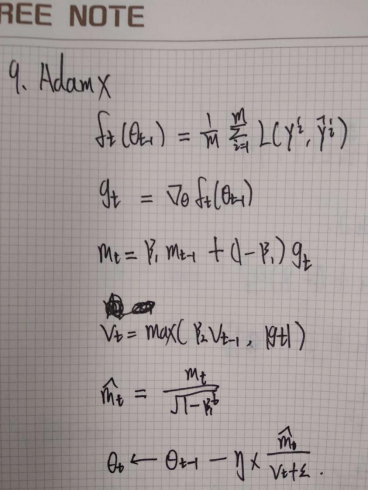 REE NOTE
9. Adam X
f_t(θ_{t-1}) = \frac{1}{m} \sum_{i=1}^{m} L(y^i, ŷ^i)
g_t = ∇_θ f_t(θ_{t-1})
m_t = β_1 m_{t-1} + (1-β_1) g_t
V_t = max(β_2 V_{t-1}, |g_t|)
\hat{m}_t = \frac{m_t}{\sqrt{1-β_1^t}}
θ_t ← θ_{t-1} - η × \frac{\hat{m}_t}{V_t+ε}.